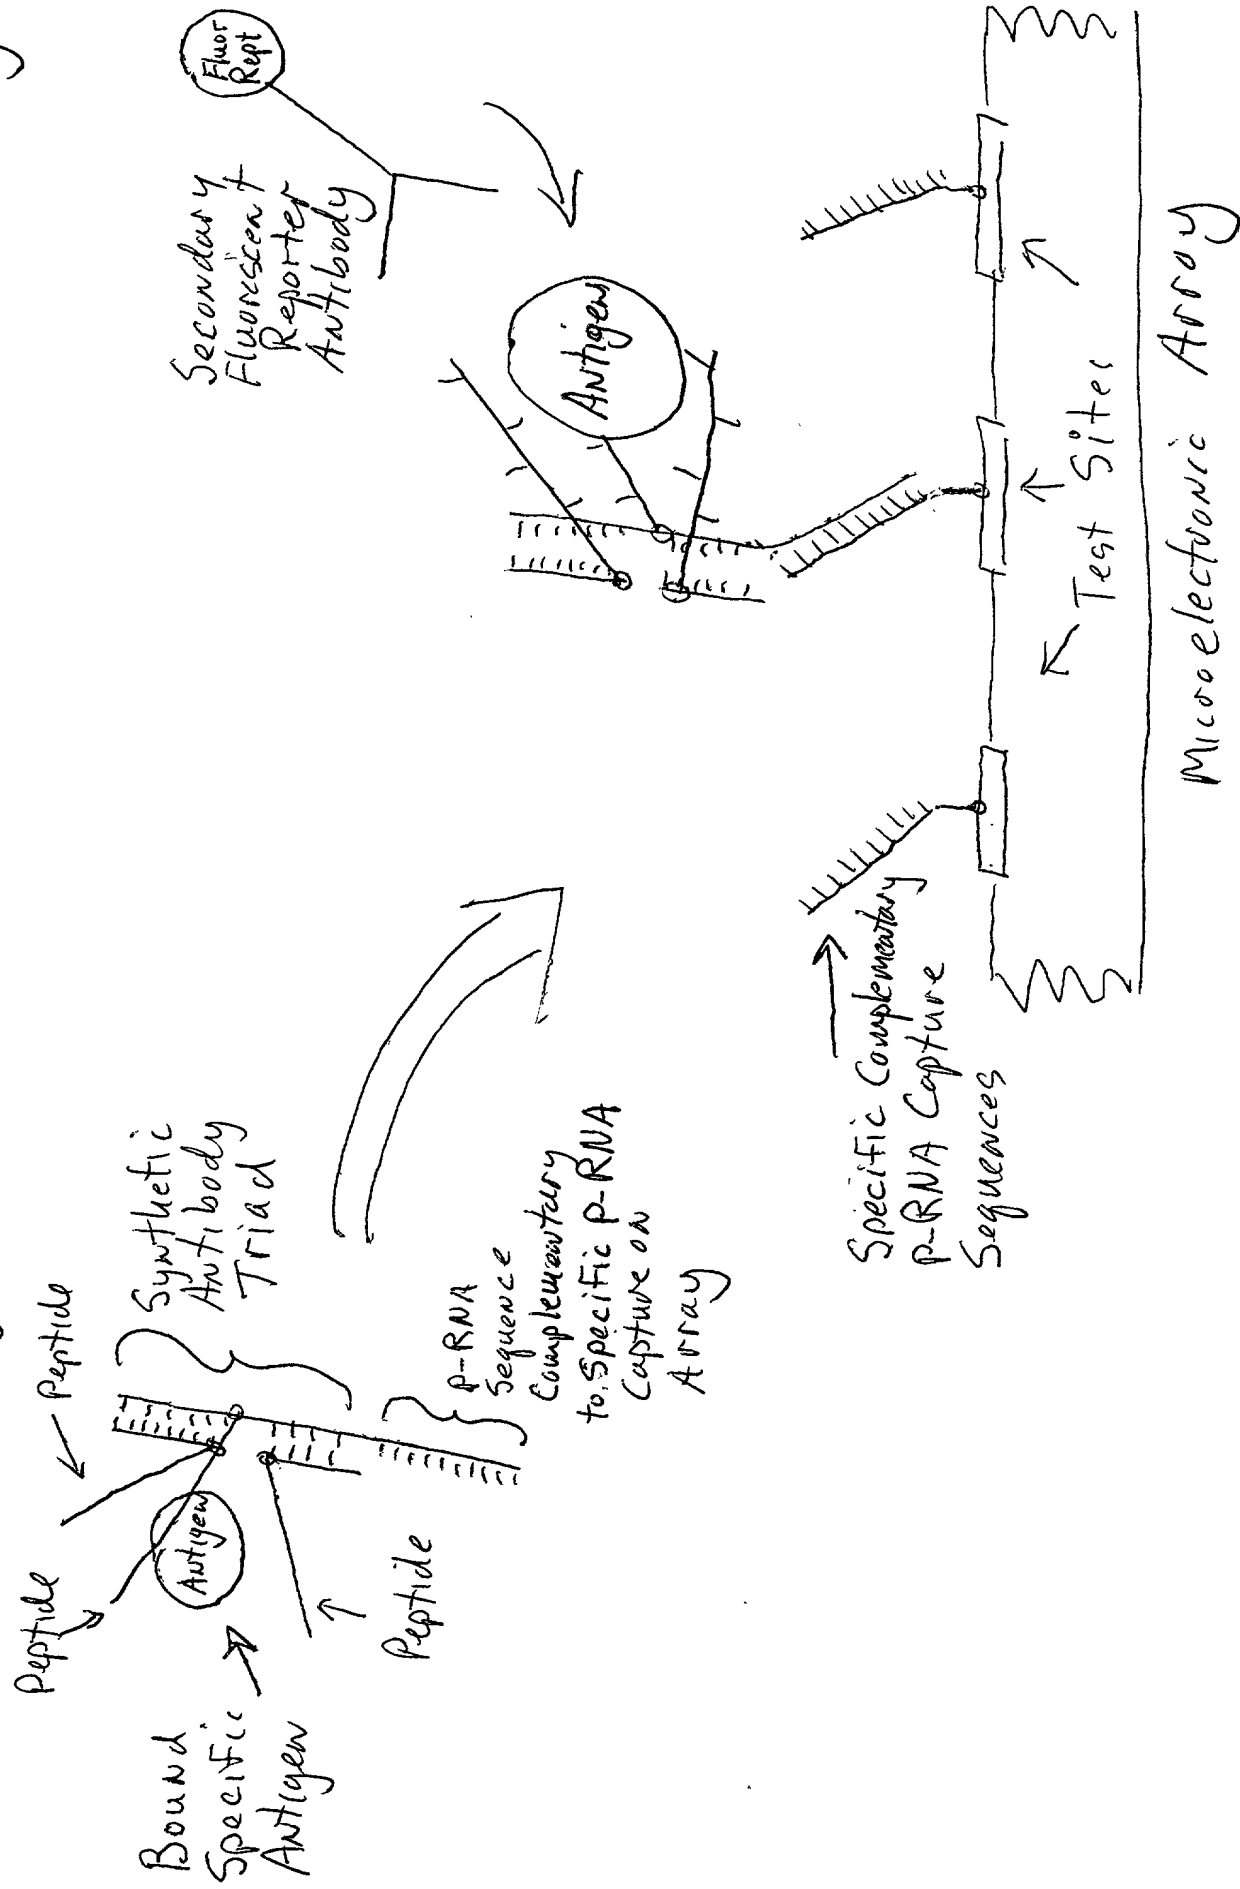 Peptide
Peptide
Bound
Specific
Antigen
Antigen
Peptide
Synthetic
Antibody
Triad
p-RNA
Sequence
Complementary
to Specific p-RNA
Capture on
Array
Secondary
Fluorescent
Reporter
Antibody
Fluor
Rept
Antigen
Specific Complementary
p-RNA Capture
Sequences
Test Sites
Microelectronic Array